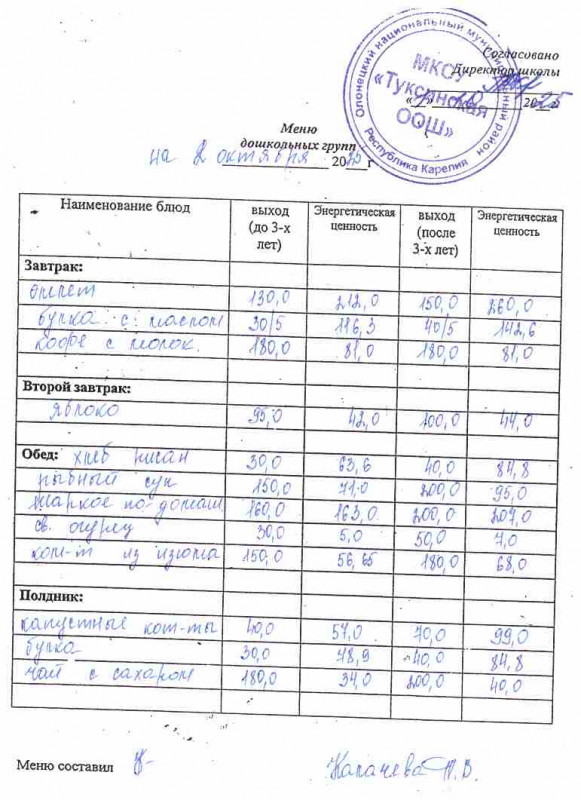 Согласовано
Директор школы
20 25 г
Олонецкий национальный муниципальный район
Республика Карелия
МКОУ
«Туксинская
ООШ»
Меню
дошкольных групп
на 2 октября 20 25 г
Наименование блюд выход (до 3-х лет) Энергетическая ценность выход (после 3-х лет) Энергетическая ценность
Завтрак:
омлет 130,0 212,0 150,0 260,0
булка с маслом 30/5 116,3 40/5 142,6
кофе с молок. 180,0 81,0 180,0 81,0
Второй завтрак:
яблоко 95,0 42,0 100,0 44,0
Обед: хлеб пшен 30,0 63,6 40,0 84,8
рыбный суп 150,0 71,0 200,0 95,0
жаркое по-домаш 160,0 163,0 200,0 204,0
св. огурец 30,0 5,0 50,0 7,0
ком-т из изюма 150,0 56,65 180,0 68,0
Полдник:
капустные кот-ты 40,0 57,0 70,0 99,0
булка 30,0 78,9 40,0 84,8
чай с сахаром 180,0 34,0 200,0 40,0
Меню составил